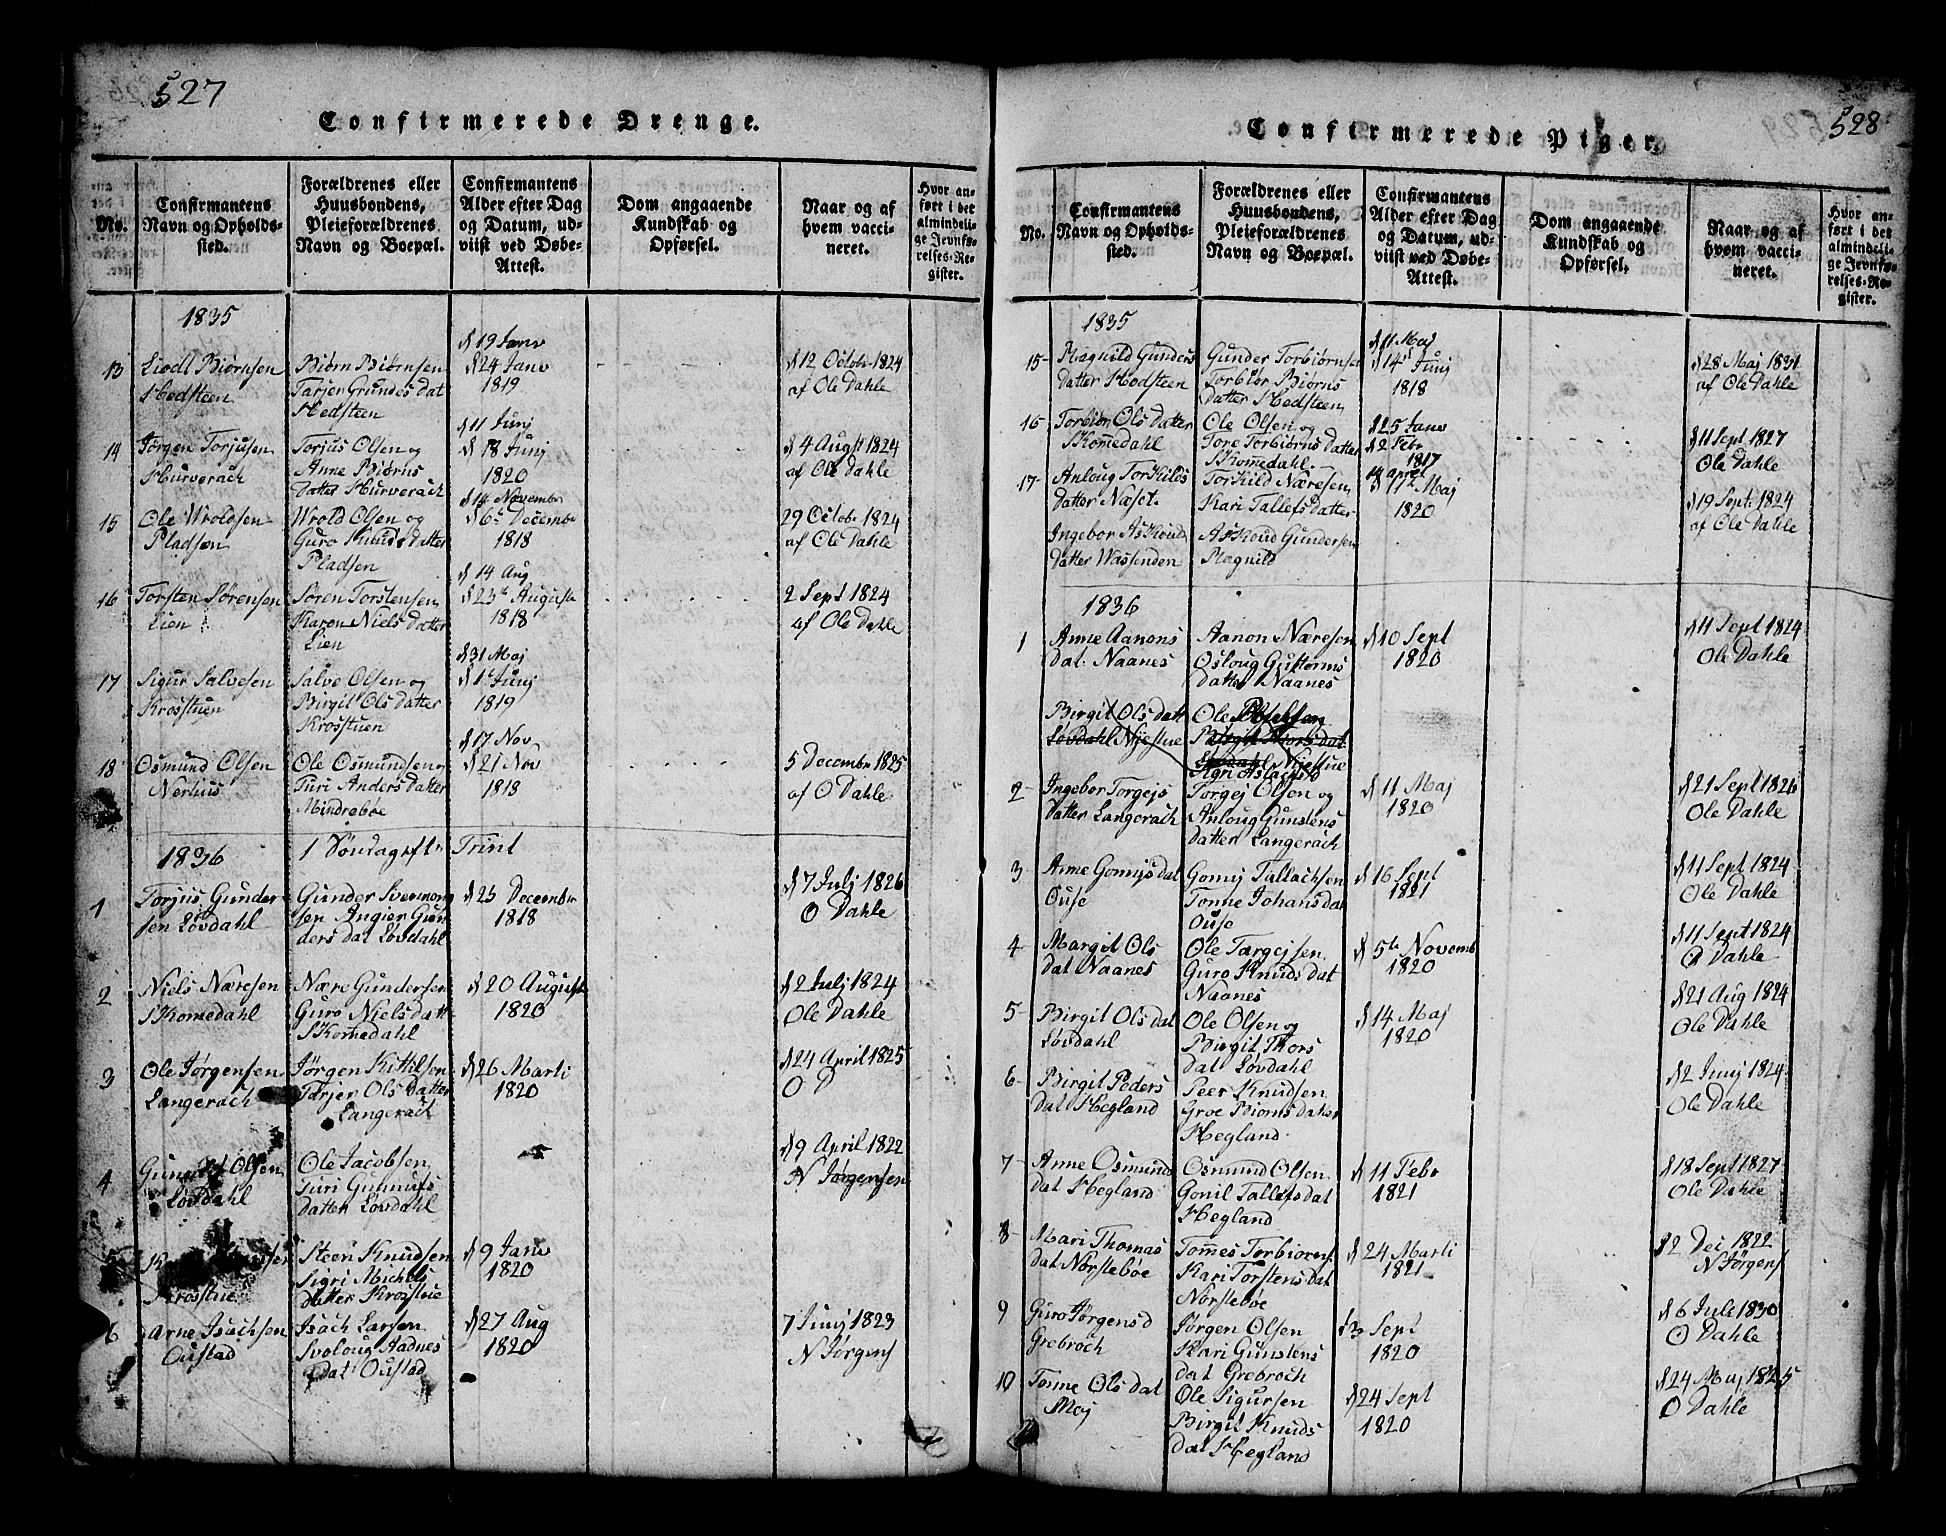 527
Confirmerede Drenge.
No.
Confirmantens
Navn og Opholds-
sted.
Forældrenes eller
Huusbondens,
Pleieforældrenes
Navn og Boepæl.
Confirmantens
Alder efter Dag
og Datum, ud-
viist ved Døbe-
Attest.
Dom angaaende
Kundskab og
Opførsel.
Naar og af
hvem vacci-
neret.
Hvor an-
ført i det
almindeli-
ge Jevnfø-
relses-Re-
gister.
1835
13
Liodl Biørnsen
Hedsteen
Biørn Biørnsen
Tarjer Grundes dat
Hedsteen
d 19 Janv
d 24 Janv
1819
d 12 Octobr 1824
af Ole Dahle
14
Jørgen Torjusen
Hurverach
Torjus Olsen og
Anne Biørns
datter Hurverach
d 11 Junj
d 18 Junj
1820
d 4 Augst 1824
af Ole Dahle
15
Ole Wroldsen
Pladsen
Wrold Olsen og
Guro Knuds datter
Pladsen
d 14 Novembr
d 6t Decembr
1818
29 Octobr 1824
af Ole Dahle
16
Torsten Sørensen
Lien
Søren Torstensen
Karen Niels datter
Lien
d 14 Aug
d 23de Auguste
1818
2 Sept 1824
af Ole Dahle
17
Sigur Salvesen
Krosstuen
Salve Olsen og
Birgit Ols datter
Krosstuen
d 31 Maj
d 1t Junj
1819
18
Osmund Olsen
Nerhus
Ole Osmundsen
Turi Anders datter
Mindrebøe
d 17 Nov
d 21 Nov
1818
5 Decembr 1825
af O Dahle
1836
1 Søndag eftr Trint
1
Torjus Gunder
sen Løvdahl
Gunder Svennong
sen Angier Gun
ders dat Løvdahl
d 23 Decembr
1818
d 7 Julj 1826
O Dahle
2
Niels Næresen
Skomedahl
Nære Gundersen
Guro Niels datt
Skomedahl
d 20 Auguste
1820
d 2 Julj 1824
Ole Dahle
3
Ole Jørgensen
Langerach
Jørgen Kittilsen
Tarjer Ols Datter
Langerach
d 26 Marti
1820
d 24 April 1825
O D
4
Olsen
Løvdahl
Ole Jacobsen
Turi Gunnufs
datter Løvdahl
d 9 April 1822
N Jørgensen
5
Krosstue
Steen Knudsen
Sigri Michels
datter Krosstue
d 9 Janv
1820
6
Arne Isachsen
Oustad
Isach Larsen
Svoloug Aadnes
dat Oustad
d 27 Aug
1820
7 Junj 1823
N Jørgens
528
Confirmerede Piger.
No.
Confirmantens
Navn og Opholds-
sted.
Forældrenes eller
Huusbondens,
Pleieforældrenes
Navn og Boepæl.
Confirmantens
Alder efter Dag
og Datum, ud-
viist ved Døbe-
Attest.
Dom angaaende
Kundskab og
Opførsel.
Naar og af
hvem vacci-
neret.
Hvor an-
ført i det
almindeli-
ge Jevnfø-
relses-Re-
gister.
1835
15
Ragnild Gunders
datter Hodsteen
Gunder Torbiørnsen
Torbiør Biørns
datter Hedsteen
d 11 Maj
d 14t Junj
1818
d 28 Maj 1831
af Ole Dahle
16
Torbiør Ols datter
Skomedahl
Ole Olsen og
Tore Torbiørns datter
Skomedahl
d 25 Janv
d 2 Febr
1817
d 11 Sept 1827
Ole Dahle
17
Anloug Torkilds
datter Næset
Torkild Næresen
Kari Tallefs datter
14 April
d 11t Maj
1820
d 19 Sept 1824
af Ole Dahle
Ingebor Askoud
datter Wassenden
Askoud Gundersen
Ragnild
1836
1
Anne Aanons
dat Naanes
Aanon Næresen
Osloug Guttorms
datter Naanes
d 10 Sept
1820
d 11 Sept 1824
Ole Dahle
Birgit Ols datt
Løvdahl Nystue
Ole
Birgit Thors dat
Løvdahl Nystue
Sigri Aslachs D
2
Ingebor Torgejs
datter Langerach
Torgej Olsen og
Anloug Gunstens
datter Langerach
d 11 Maj
1820
d 21 Sept 1826
Ole Dahle
3
Anne Gomijs dat
Ouse
Gomij Tallachsen
Tonne Johans dat
Ouse
d 16 Sept
1821
d 11 Sept 1824
Ole Dahle
4
Margit Ols
dat Naanes
Ole Targejsen
Guro Knuds dat
Naanes
d 5te Novemb
1820
d 11 Sept 1824
O Dahle
5
Birgit Ols dat
Løvdahl
Ole Olsen og
Birgit Thors
dat Løvdahl
d 14 Maj
1820
d 21 Aug 1824
Ole Dahle
6
Birgit Peders
dat Hegland
Peer Knudsen
Groe Biorns datter
Hegland
d 2 Junj 1824
Ole Dahle
7
Anne Osmund
dat Hegland
Osmund Olsen
Gonil Tallefs dat
Hegland
d 11 Febr
1821
d 18 Sept 1827
Ole Dahle
8
Mari Thomas
dat Norstebøe
Tomes Torbiorns
Kari Torstens dat
Norstebøe
d 24 Marti
1821
d 2 Dec 1822
N Jørgens
9
Guro Jørgens d
Grebroch
Jørgen Olsen
Kari Gunstens
dat Grebroch
d 3 Sept
1820
d 6 Jule 1830
O Dahle
10
Tonne Ols dat
Moj
Ole Sigursen
Birgit Knuds
dat Hegland
d 24 Sept
1820
d 24 Maj 1825
O Dahle